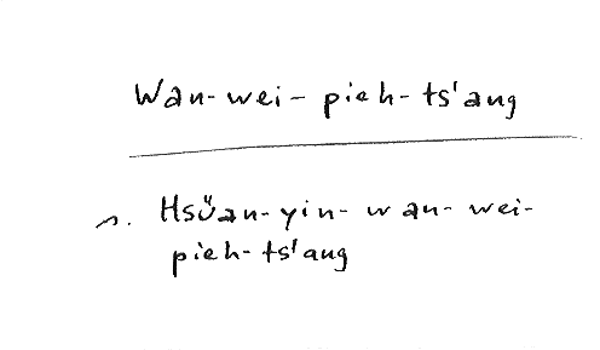 Wan-wei-pieh-ts'ang
s. Hsüan-yin-wan-wei-
pieh-ts'ang